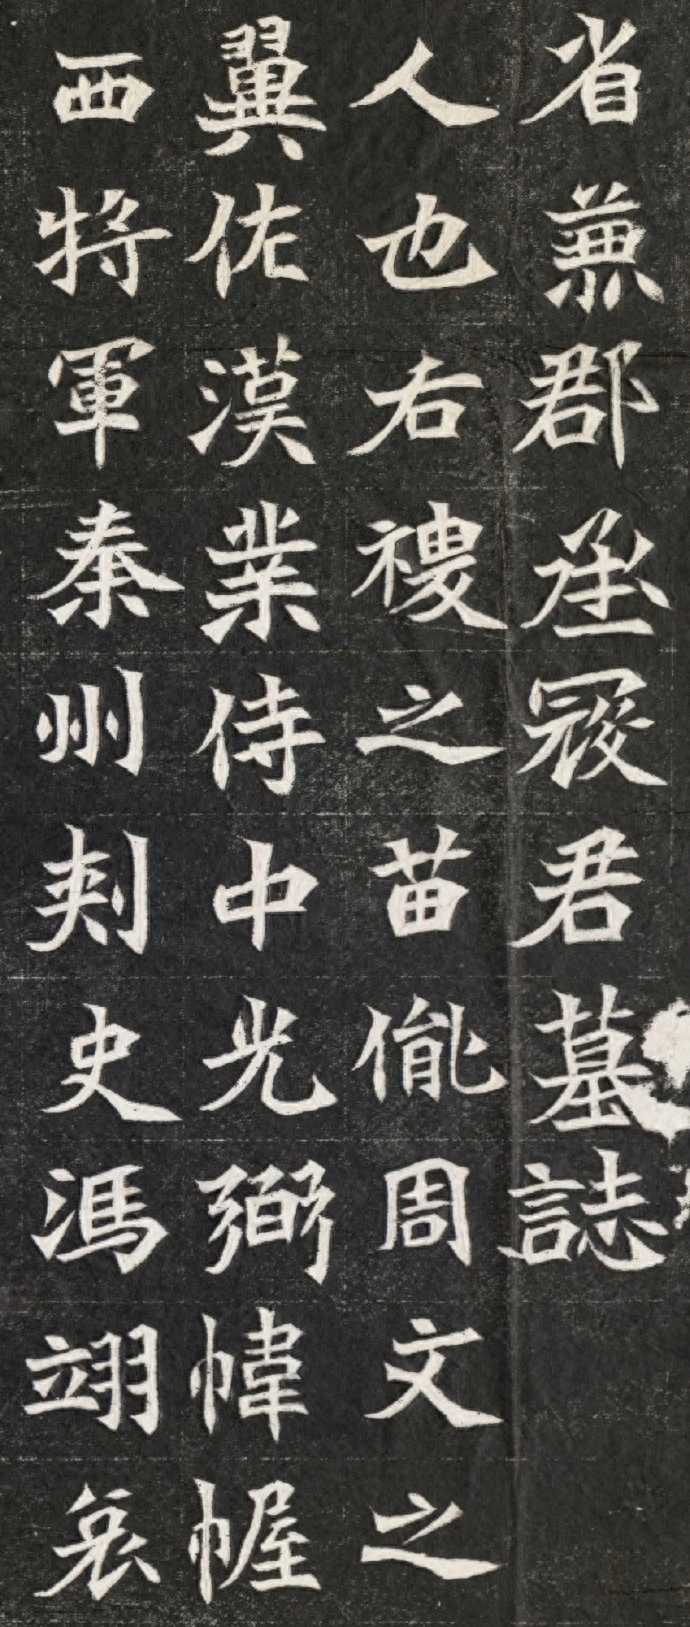 省兼郡丞寇君墓誌
人也右禝之苗胤周文之
翼佐漢業侍中光弼幃幄
西將軍秦州刾史馮翊哀